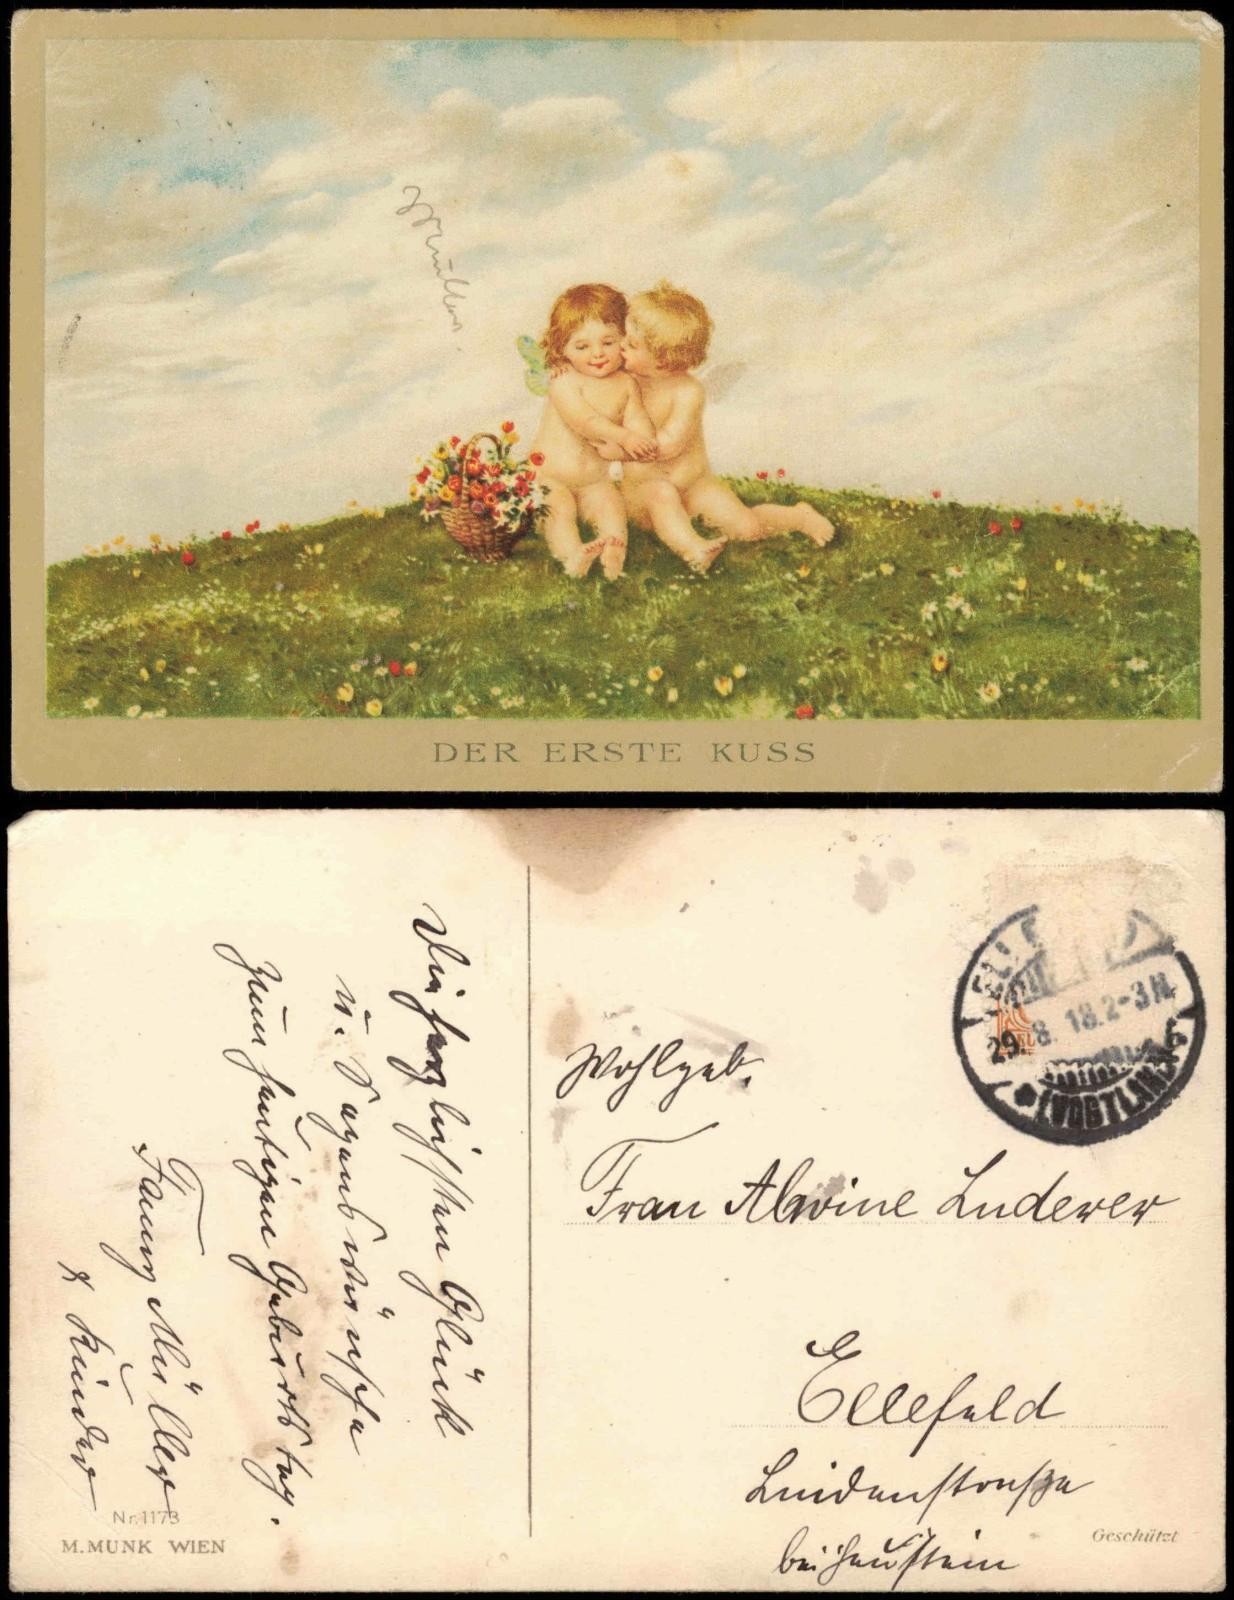 Müller.
DER ERSTE KUSS
Die herzlichsten Glück
u. Segenswünsche
zum heutigen Geburtstag.
Fanny Müller
& Kinder
Nr. 1173
M. MUNK WIEN
29. 8. 18. 2-3 N.
(VOGTLAND)
Wohlgeb.
Frau Alwine Luderer
Ellefeld
Lindenstraße
bei
Geschützt